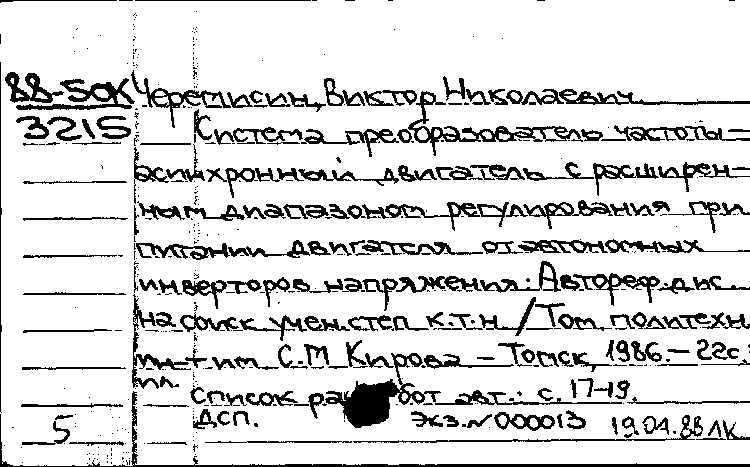 88-50К Черемисин, Виктор Николаевич
3215 Система преобразователь частоты -
асинхронный двигатель с расширен-
ным диапазоном регулирования при
питании двигателя от автономных
инверторов напряжения: Автореф. дис.
на соиск. учен. степ. к.т.н / Том. политехн.
ин-т им. С.М Кирова - Томск, 1986. - 22с.:
ил.
Список работ авт.: с. 17-19.
ДСП. Экз. N 000013 19.01.88 ЛК
5